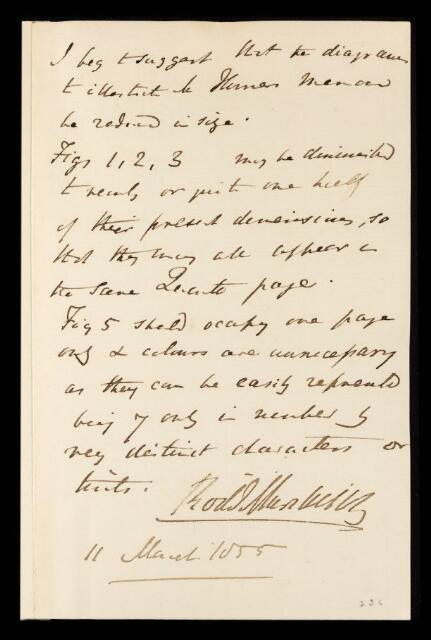 I beg to suggest that the diagrams
to illustrate Mr Horners Memoir
be reduced in size.
Figs 1, 2, 3 may be diminished
to nearly or quite one half
of their present dimensions, so
that they may all appear in
the same Quarto page.
Fig 5 should occupy one page
only & colours are unnecessary
as they can be easily represented
being 7 only in number by
very distinct characters or
tints.
Rod I Murchison
11 March 1855